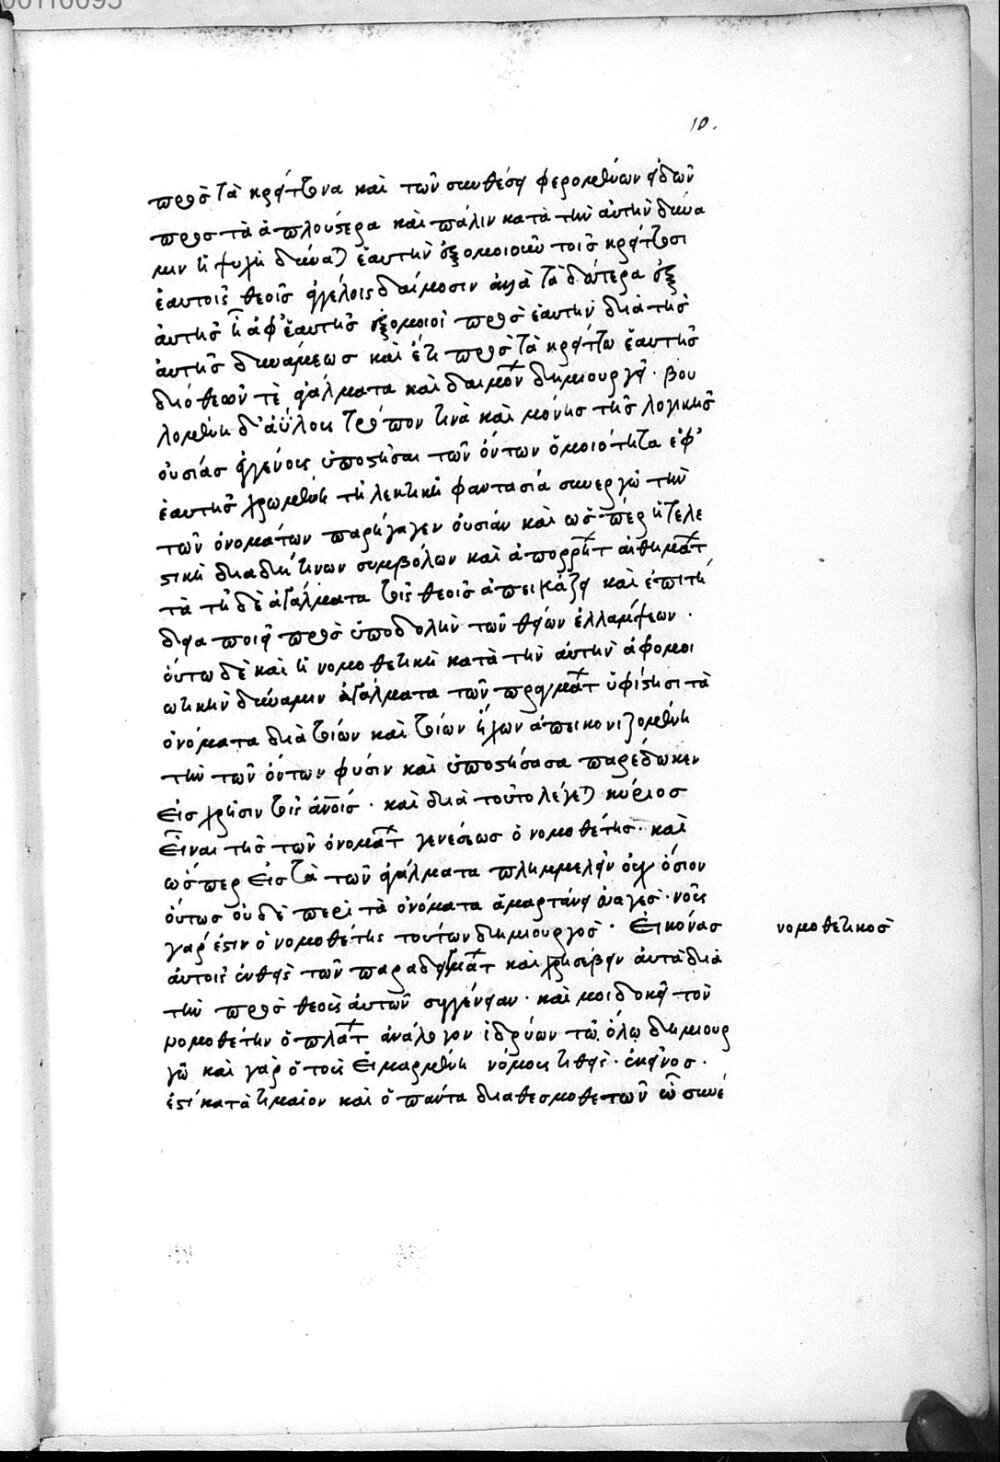 00110095
10.
πρὸς τὰ κρείττονα καὶ τῶν συνθέσει φερομένων εἰδῶν
πρὸς τὰ ἁπλούστερα καὶ πάλιν κατὰ τὴν αὐτὴν δύνα
μιν ἡ ψυχὴ δύναται ἑαυτὴν ἐξομοιοῦν τοῖς κρείττοσι
ἑαυτοῖς θεοῖς ἀγγέλοις δαίμοσιν ἀλλὰ τὰ δεύτερα ἐξ
αὐτῆς ἢ ἀφ' ἑαυτῆς ἐξομοιοῖ πρὸς ἑαυτὴν διὰ τῆς
αὐτῆς δυνάμεως καὶ ἔτι πρὸς τὰ κρείττω ἑαυτῆς
διὸ θεῶν τὲ ἀγάλματα καὶ δαιμόνων δημιουργεῖ. βου
λομένη δ' ἀΰλους τρόπον τινὰ καὶ μόνης τῆς λογικῆς
οὐσίας ἐγγόνους ὑποστῆσαι τῶν ὄντων ὁμοιότητα ἀφ'
ἑαυτῆς χρωμένη τῇ λεκτικῇ φαντασίᾳ συνεργῷ τὴν
τῶν ὀνομάτων παρήγαγεν οὐσίαν καὶ ὥσπερ ἡ τελε
στικὴ διὰ δή τινων συμβόλων καὶ ἀπορρήτων συνθημάτων
τὰ τῇδε ἀγάλματα τοῖς θεοῖς ἀπεικάζει καὶ ἐπιτή
δεια ποιεῖ πρὸς ὑποδοχὴν τῶν θείων ἐλλάμψεων.
οὕτω δὲ καὶ ἡ νομοθετικὴ κατὰ τὴν αὐτὴν ἀφομοι
ωτικὴν δύναμιν ἀγάλματα τῶν πραγμάτων ὑφίστησι τὰ
ὀνόματα διὰ τοίων καὶ τοίων ἤχων ἀπεικονιζομένη
τὴν τῶν ὄντων φύσιν καὶ ὑποστήσασα παρέδωκεν
εἰς χρῆσιν τοῖς ἀνοῖς. καὶ διὰ τοῦτο λέγεται κύριος
εἶναι τῆς τῶν ὀνομάτων γενέσεως ὁ νομοθέτης. καὶ
ὥσπερ εἰς τὰ τῶν ἀγάλματα πλημμελεῖν οὐχ ὅσιον
οὕτως οὐδὲ περὶ τὰ ὀνόματα ἁμαρτάνειν εὐαγές. νοῦς
γάρ ἐστιν ὁ νομοθέτης τούτων δημιουργὸς. εἰκόνας
νομοθετικὸς
αὐτοῖς ἐνθεὶς τῶν παραδειγμάτων καὶ χρὴ σέβειν αὐτὰ διὰ
τὴν πρὸς θεοὺς αὐτῶν συγγένειαν. καί μοι δοκεῖ τὸν
νομοθέτην ὁ πλάτων ἀνάλογον ἱδρύων τῷ ὅλῳ δημιουρ
γῷ καὶ γὰρ ὁ τοὺς εἱμαρμένη νόμους τιθεὶς. ἐκεῖνος.
ἐστὶ κατὰ τίμαιον καὶ ὁ πάντα διαθεσμοθετῶν ᾧ συνέ